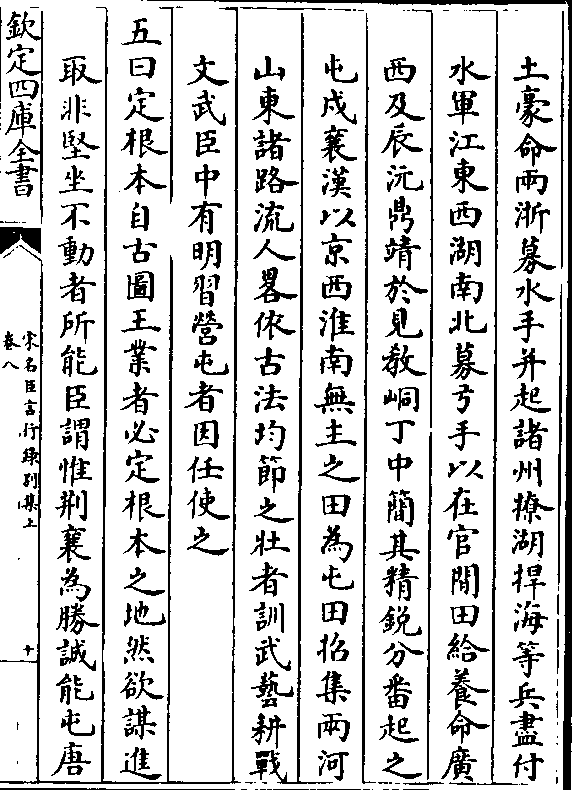 土豪命兩浙募水手并起諸州撩湖捍海等兵盡付
水軍江東西湖南北募弓手以在官閒田給養命廣
西及辰沅鼎靖於見敎峒丁中簡其精鋭分畨起之
屯戍襄漢以京西淮南無主之田為屯田招集兩河
山東諸路流人畧依古法均節之壯者訓武藝耕戰
文武臣中有明習營屯者因任使之
五曰定根本自古圖王業者必定根本之地然欲謀進
取非堅坐不動者所能臣謂惟荆襄為勝誠能屯唐
欽定四庫全書
宋名臣言行録别集上
卷八
十